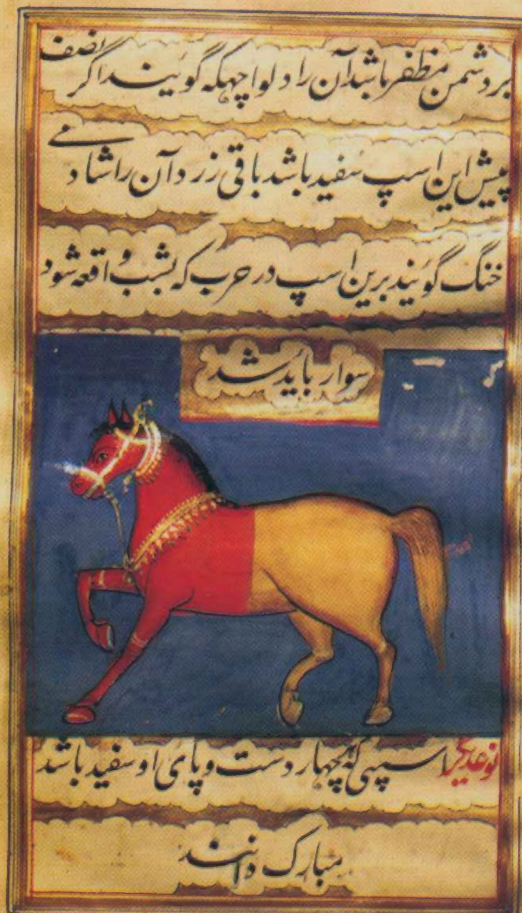 بر دشمن مظفر باشد آن را دلواچهکه گویند اگر نصف
پیش این اسپ سفید باشد باقی زرد آن را شامی
خنگ گویند برین اسپ در حرب که بشب واقعه شود
سوار باید شد
نوعدیگر اسپی که چهار دست و پای او سفید باشد
مبارک دانند